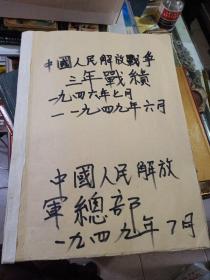 中國人民解放戰爭
三年戰績
一九四六年七月
——一九四九年六月
中國人民解放
軍總部
一九四九年7月